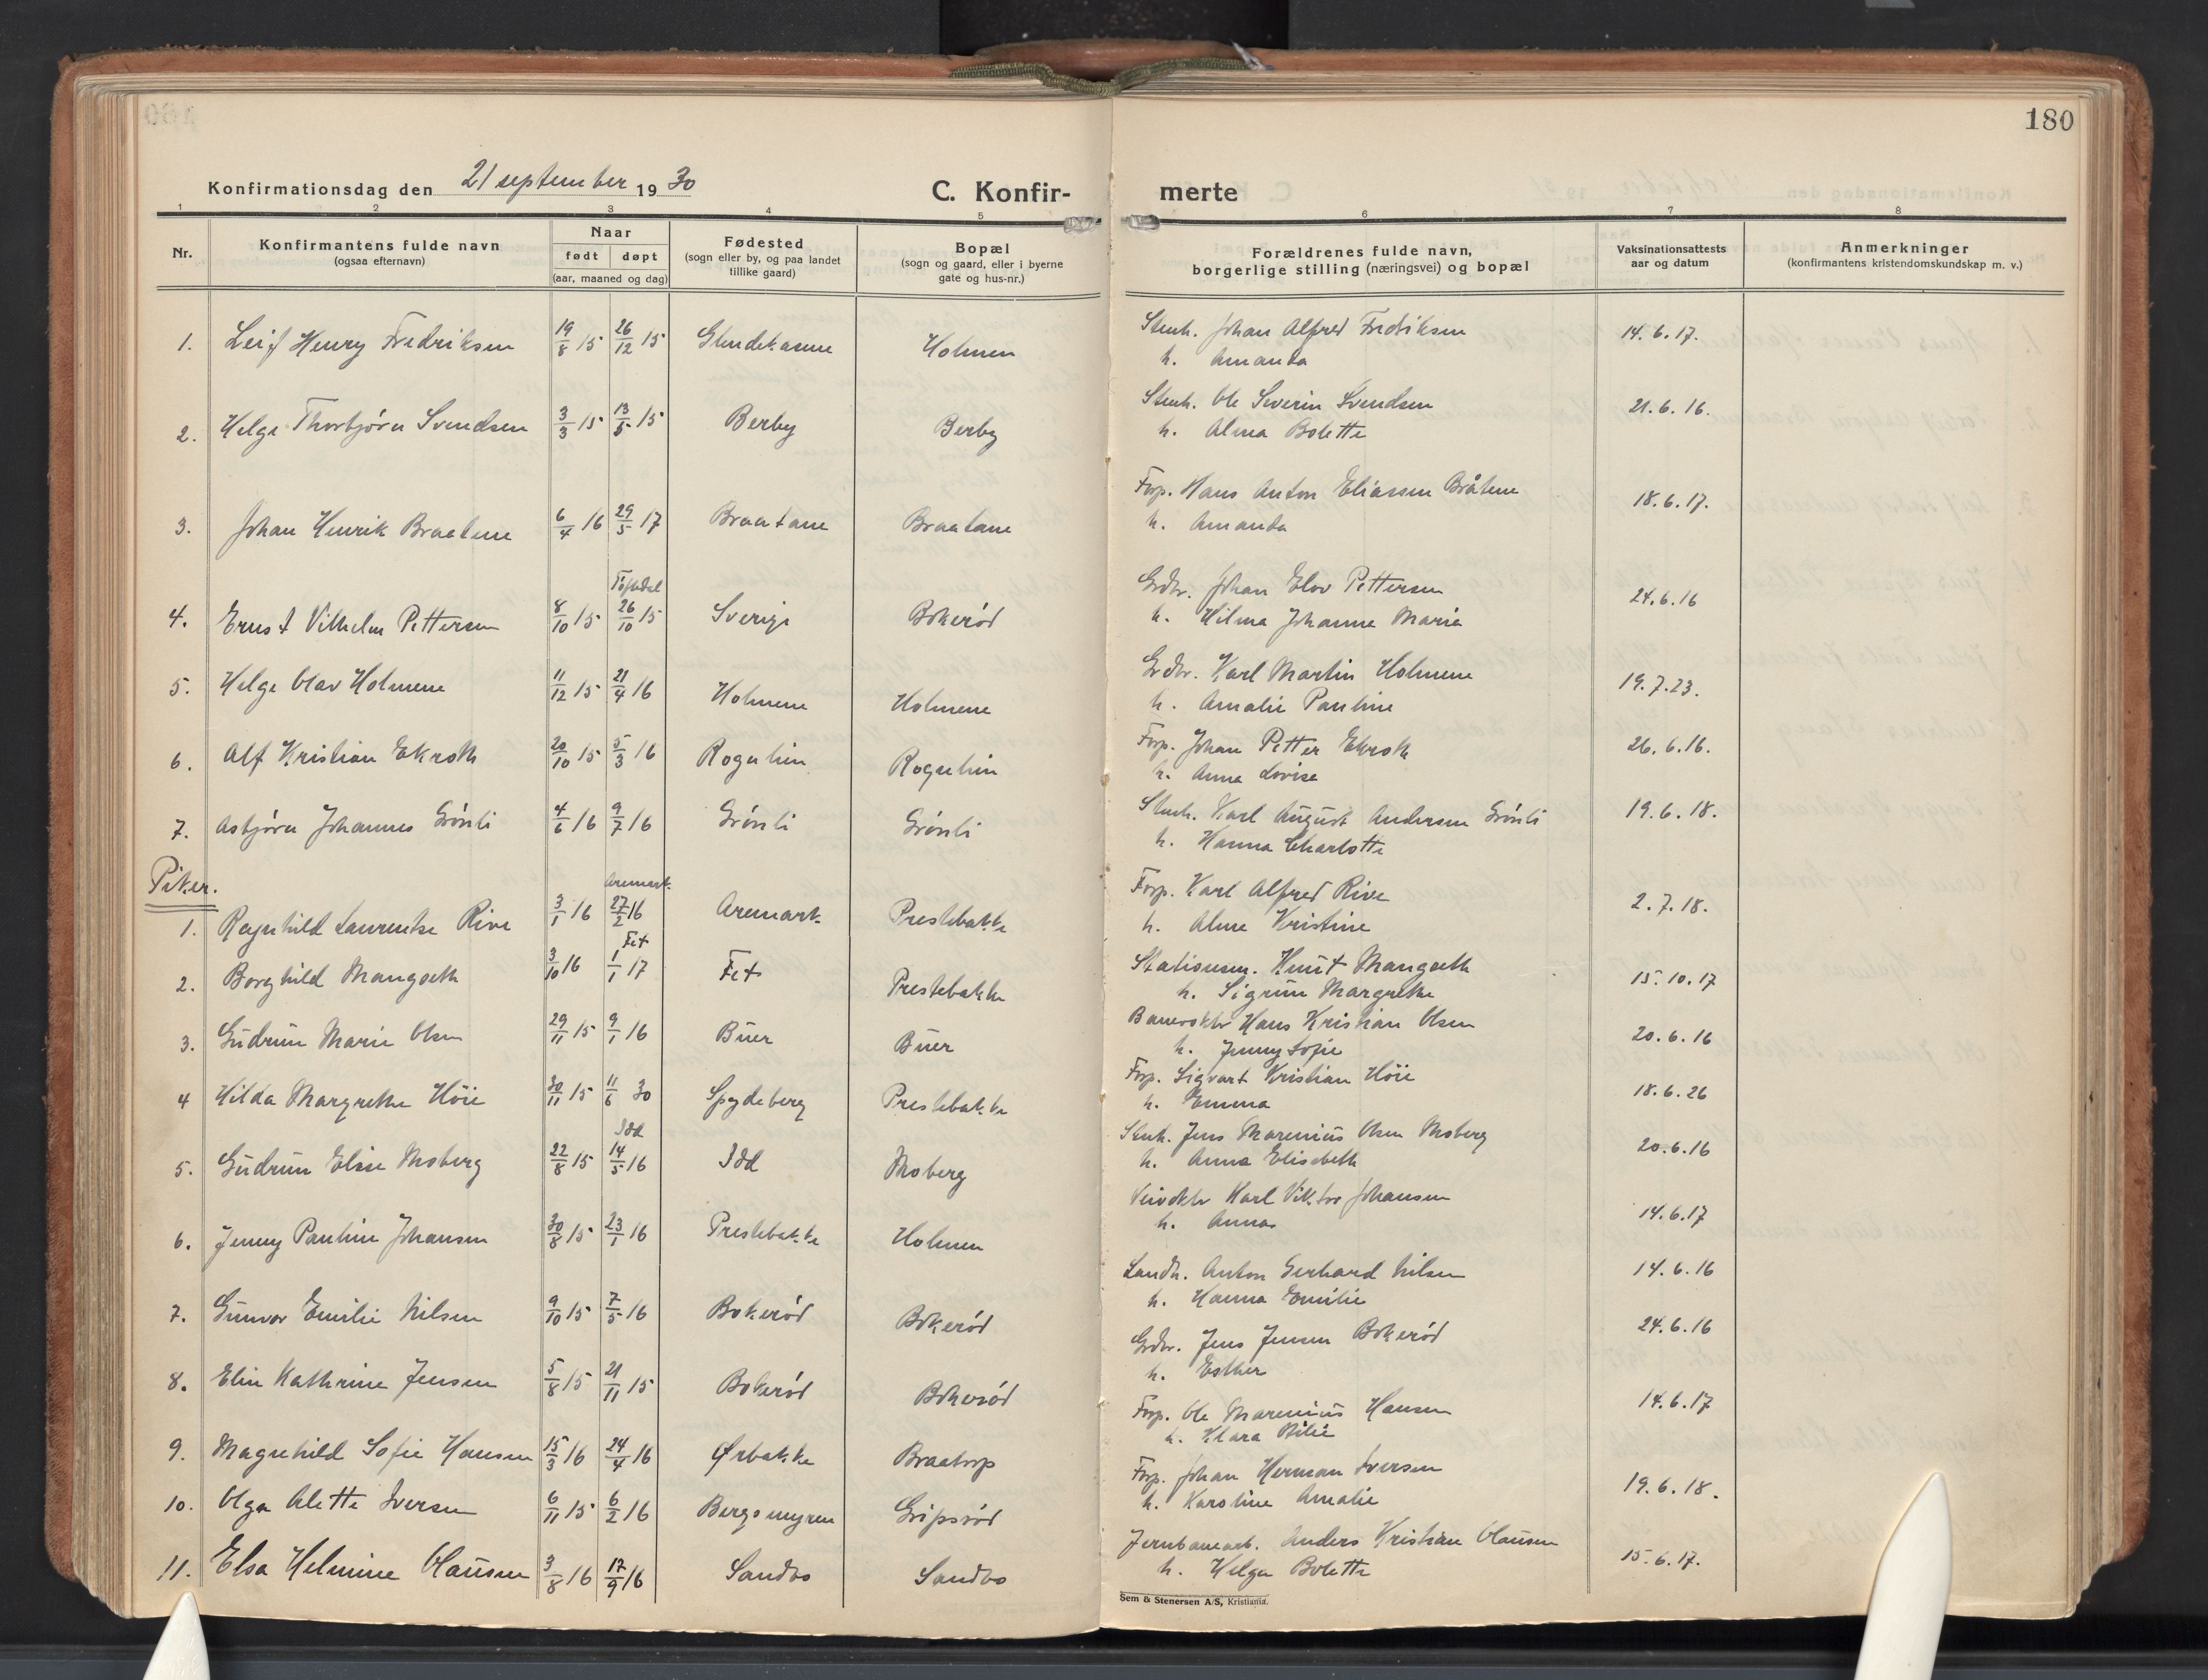 180
Konfirmationsdag den 21 september 1930
C. Konfir-
merte
1 2 3 4 5 6 7 8
Nr.
Konfirmantens fulde navn
(ogsaa efternavn)
Naar
født døpt
(aar, maaned og dag)
Fødested
(sogn eller by, og paa landet
tillike gaard)
Bopæl
(sogn og gaard, eller i byerne
gate og hus-nr.)
Forældrenes fulde navn,
borgerlige stilling (næringsvei) og bopæl
Vaksinationsattests
aar og datum
Anmerkninger
(konfirmantens kristendomskundskap m. v.)
1. Leif Henry Fredriksen 19/8 15 26/12 15 Holmen Stenh. Johan Alfred Fredriksen 14.6.17.
h. Amanda
2. Helge Thorbjørn Svendsen 3/3 15 13/5 15 Berby Berby Stenh. Ole Severin Svendsen 21.6.16.
h. Alma Bolette
3. Johan Henrik Braatene 6/4 16 29/5 17 Braatane Braatane Forp. Hans Anton Eliassen Bråtene 18.6.17.
h. Amanda
4. Ernst Vilhelm Pettersen 8/10 15 26/10 15 Sverige Bokerød Grdbr. Johan Elov Pettersen 24.6.16
h. Hilma Johanne Maria
5. Helge Olav Holmene 11/12 15 21/4 16 Holmene Holmene Grdbr. Karl Martin Holmene 19.7.23.
h. Amalie Pauline
6. Alf Kristian Ekroth 20/10 15 5/3 16 Rognlien Rognlien Forp. Johan Petter Ekroth 26.6.16.
h. Anna Lovise
7. Asbjørn Johannes Grønli 4/6 16 9/7 16 Grønli Grønli Stenh. Karl August Andersen Grønli 19.6.18.
h. Hanna Charlotte
Piker.
Aremark
1. Ragnhild Laurentse Rive 3/1 16 27/2 16 Aremark Prestebakke Forp. Karl Alfred Rive 2.7.18.
h. Alma Kristine
Fet
2. Borghild Mangseth 3/10 16 1/1 17 Fet Prestebakke Stationsm. Knut Mangseth 15.10.17
h. Sigrun Margrethe
3. Gudrun Marie Olsen 29/11 15 9/1 16 Buer Buer Banevoktr Hans Kristian Olsen 20.6.16
h. Jenny Sofie
4 Hilda Margrethe Höie 30/11 15 11/6 30 Spydeberg Prestebakke Forp. Sigvart Kristian Höie 18.6.26
h. Emma
Idd
5. Gudrun Elise Moberg 22/8 15 14/5 16 Idd Moberg Stenh. Jens Marenius Olsen Moberg 20.6.16
h. Anna Elisabeth
6. Jenny Pauline Johansen 30/8 15 23/1 16 Prestebakke Holmen Veivoktr Karl Viktor Johansen 14.6.17
h. Anna
7. Gunvor Emilie Nilsen 9/10 15 7/5 16 Bokerød Bokerød Landh. Anton Gerhard Nilsen 14.6.16
h. Hanna Emilie
8. Elin Kathrine Jensen 5/8 15 21/11 15 Bokerød Bokerød Grdbr. Jens Jensen Bokerød 24.6.16
h. Esther
9. Magnhild Sofie Hansen 15/3 16 24/4 16 Ørbakke Braatorp Forp. Ole Marenius Hansen 14.6.17
h. Klara Otilie
10. Olga Alette Iversen 6/11 15 6/2 16 Bergsmyren Gripsrød Forp. Johan Herman Iversen 19.6.18.
h. Karoline Amalie
11. Elsa Helmine Clausen 3/8 16 17/9 16 Sandbo Sandbo Jernbanearb. Anders Kristian Clausen 15.6.17.
h. Helga Bolette
Sem & Stenersen A/S, Kristiania.